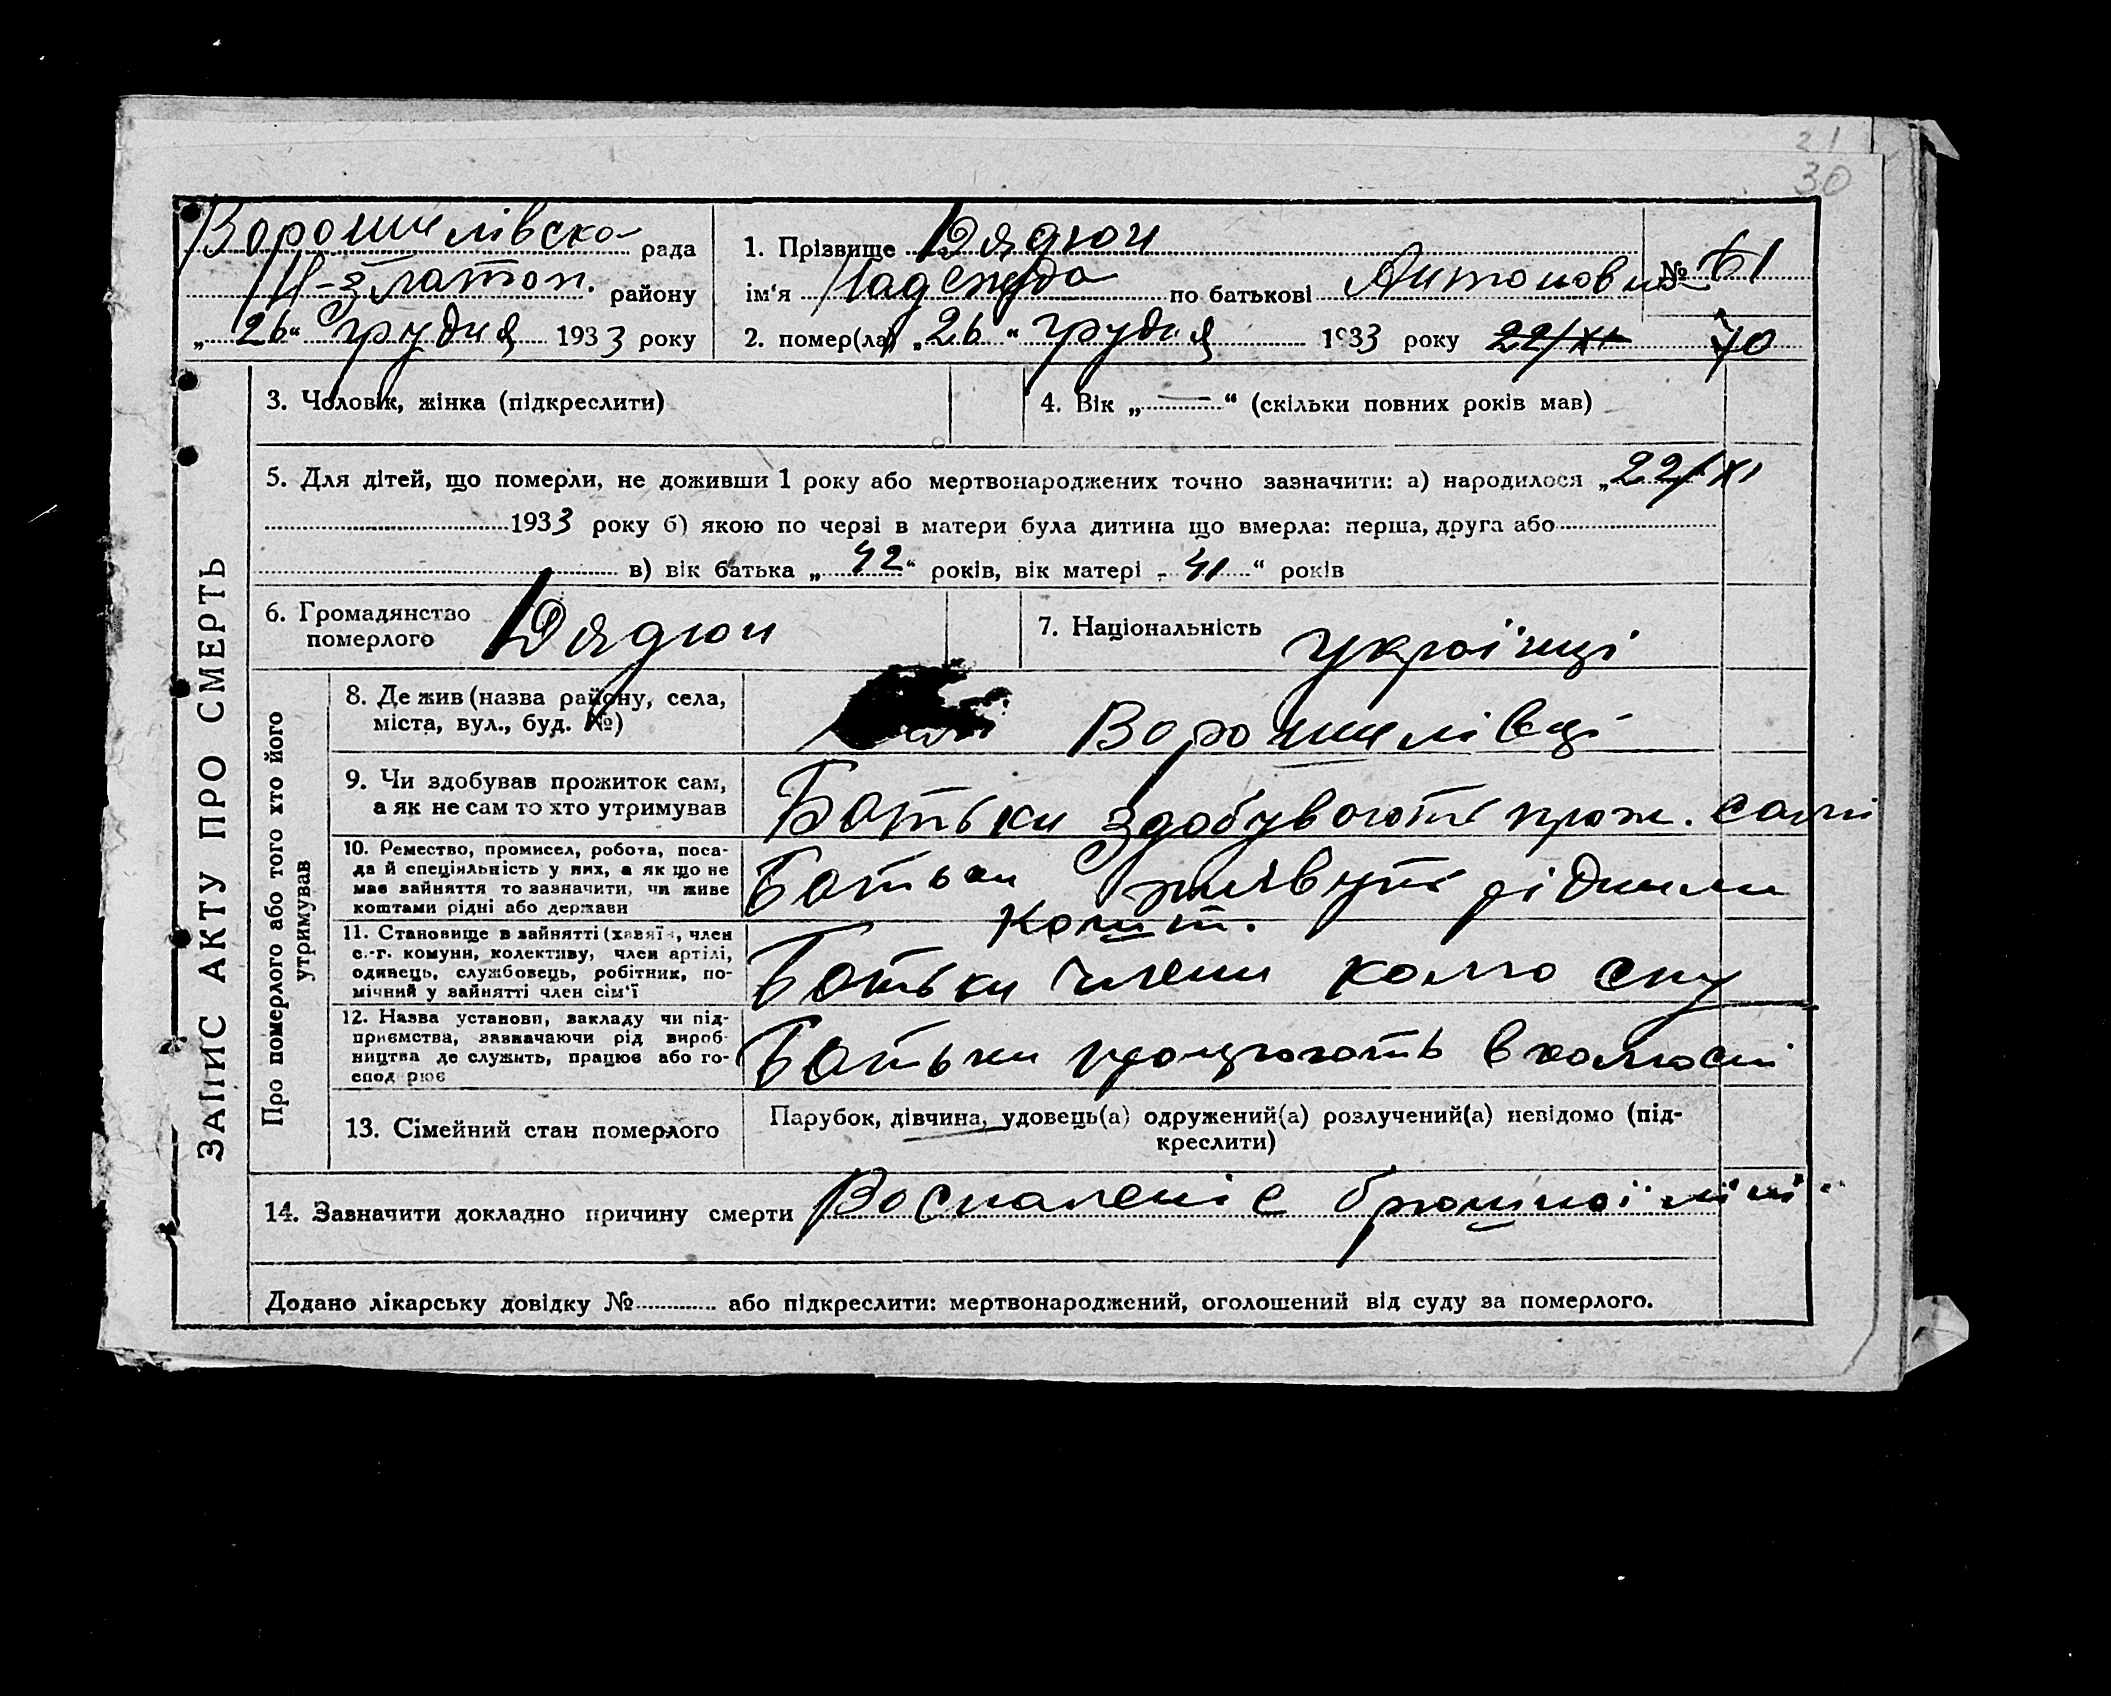 21
30
Ворошилівська рада
Н-Златоп. району
„26“ грудня 1933 року
1. Прізвище Дядюн
ім‘я Надежда по батькові Антоновна
№ 61
2. помер(ла) „26“ грудня 1933 року 22/XI 70
3. Чоловік, жінка (підкреслити)
4. Вік „—“ (скільки повних років мав)
5. Для дітей, що померли, не доживши 1 року або мертвонароджених точно зазначити: а) народилося „22/XI
1933 року б) якою по черзі в матери була дитина що вмерла: перша, друга або
в) вік батька „42“ років, вік матері „41“ років
6. Громадянство
померлого Дядюн
7. Національність українці
ЗАПИС АКТУ ПРО СМЕРТЬ
Про померлого або того хто його
утримував
8. Де жив (назва району, села,
міста, вул., буд. №)
Ворошилівці
9. Чи здобував прожиток сам,
а як не сам то хто утримував
Батьки здобувають прож. самі
10. Ремество, промисел, робота, поса-
да й спеціяльність у них, а як що не
має зайняття то зазначити, чи живе
коштами рідні або держави
Батьки живуть рідними
кошт.
11. Становище в зайнятті (хазяїн, член
с.-г. комуни, колективу, член артілі,
одинець, службовець, робітник, по-
мічний у зайнятті член сім‘ї
Батьки члени колгоспу
12. Назва установи, закладу чи під-
приємства, зазначаючи рід вироб-
ництва де служить, працює або го-
спод рює
Батьки працюють в колгоспі
13. Сімейний стан померлого
Парубок, дівчина, удовець(а) одружений(а) розлучений(а) невідомо (під-
креслити)
14. Зазначити докладно причину смерти Воспаленіє брюшної
Додано лікарську довідку № або підкреслити: мертвонароджений, оголошений від суду за померлого.